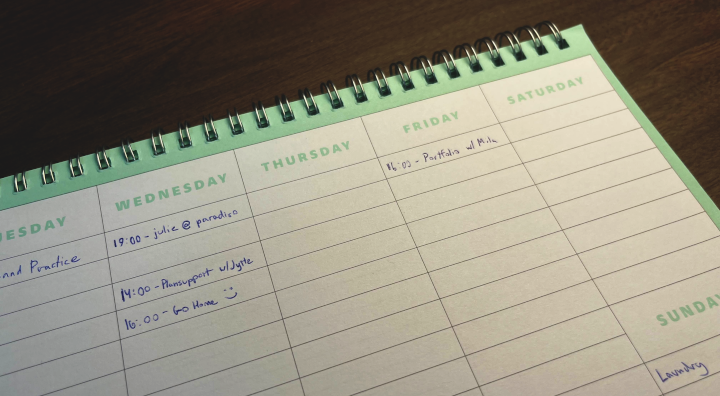 ESDAY
WEDNESDAY
THURSDAY
FRIDAY
SATURDAY
and Practice
19:00 - julie @ paradiso
14:00 - Plansupport w/ Jytte
16:00 - Go Home :)
16:00 - Portfolio w/
SUNDAY
Laundry